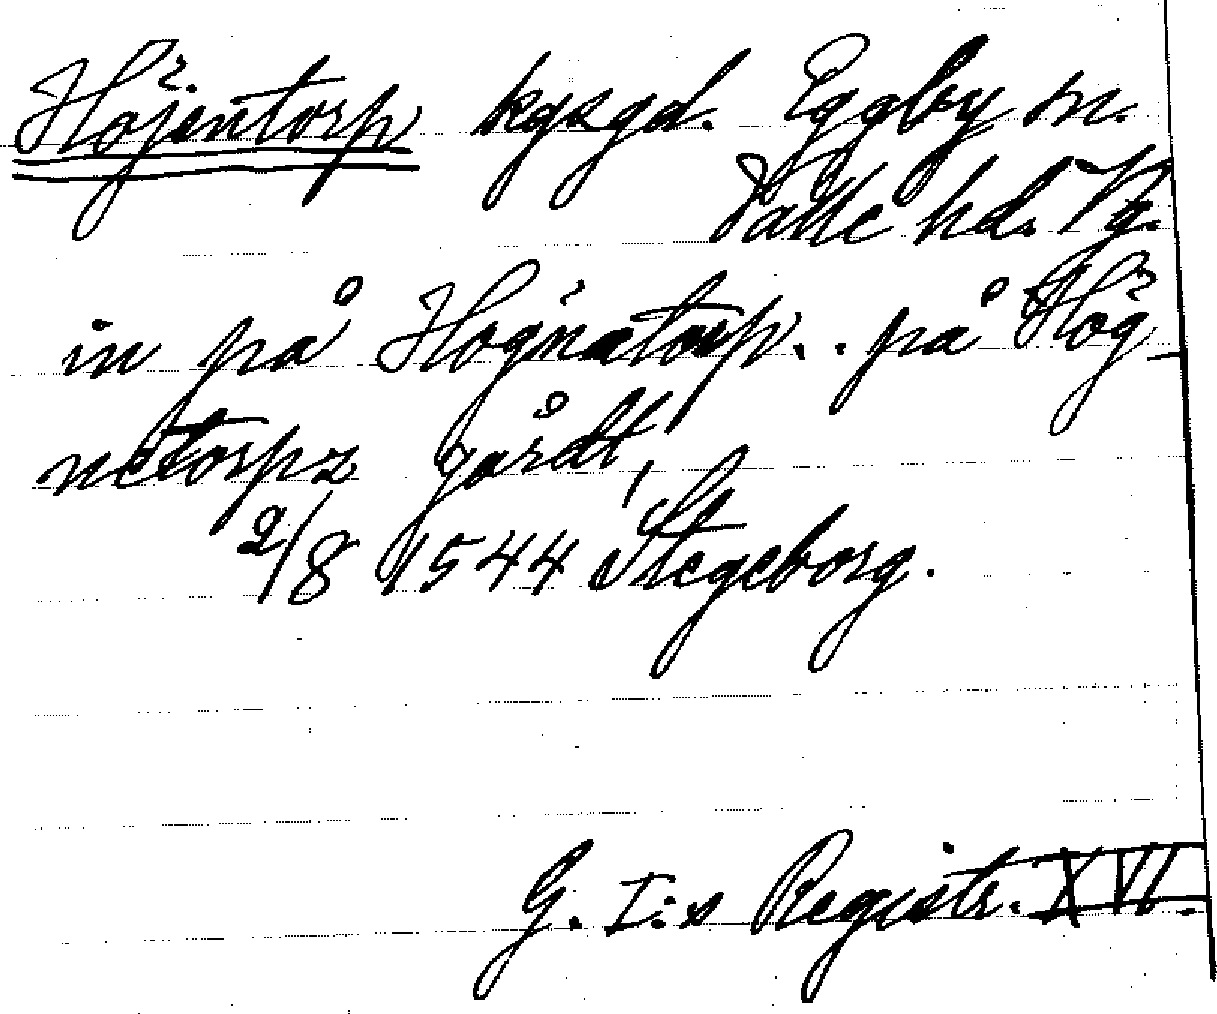 Höjentorp kgsgd. Eggby sn.
Valle hd. Vg.
in på Högnatorp.. på Hög
netorpz gårdt,
2/8 1544 Stegeborg.
G. I:s Registr. XVI.